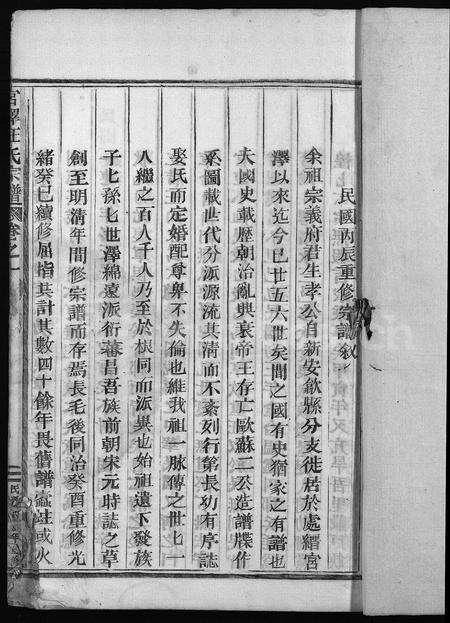 民國丙辰重修宗譜叙
余祖宗義府君生孝公自新安歙縣分支徙居於處縉宮
澤以來迄今已廿五六世矣聞之國有史猶家之有譜也
夫國史載歷朝治亂興衰帝王存亡歐蘇二公造譜牒作
系圖載世代分派源流其清而不紊列行第長幼有序誌
娶氏而定婚配尊卑不失倫也維我祖一脉傳之廿七一
人繼之百人千人乃至於根同而派異也始祖遺下發族
子七孫七世澤綿遠派衍蕃昌吾族前朝宋元時誌之草
創至明清年間修宗譜而存焉長毛後同治癸酉重修光
緒癸巳續修屈指共計其數四十餘年畏舊譜蠹蛀或火
宮澤汪氏宗譜 卷之一
民